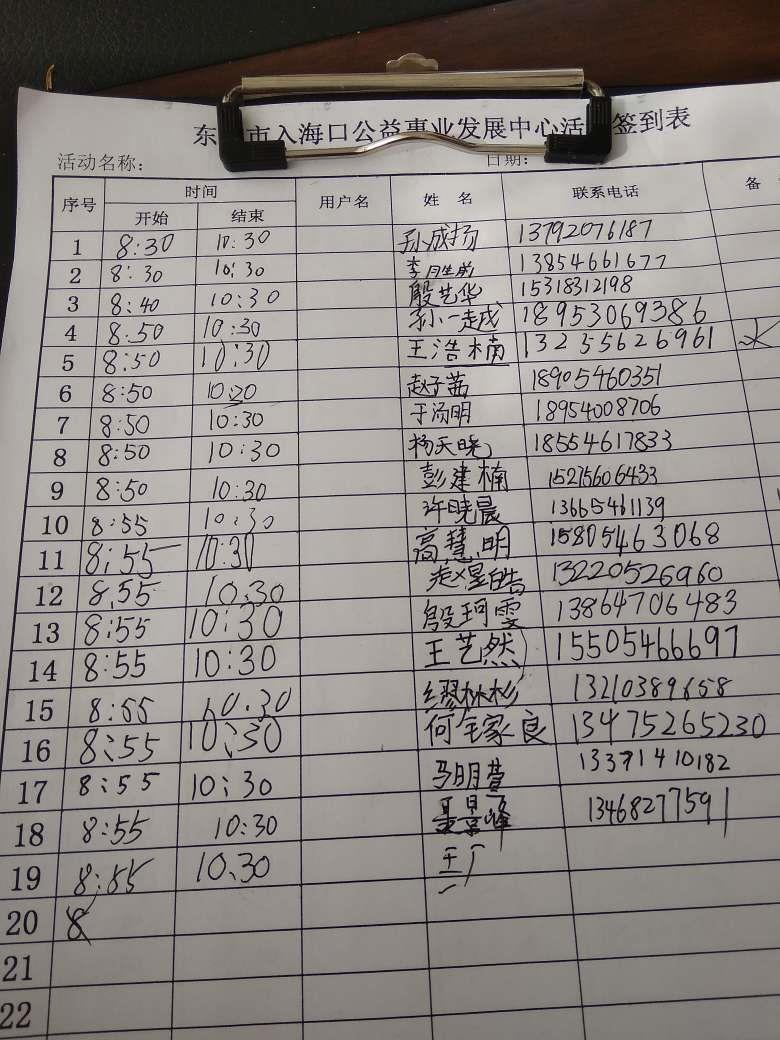 东 市入海口公益事业发展中心活 签到表
活动名称： 日期：
序号 时间 用户名 姓 名 联系电话 备
开始 结束
1 8:30 10:30 孙成扬 13792076187
2 8:30 10:30 李胜尚 13854661677
3 8:40 10:30 殷艺华 15318312198
4 8:50 10:30 孙一越 18953069386
5 8:50 10:30 王浩楠 13235626961
6 8:50 10:20 赵子茜 18905460351
7 8:50 10:30 于汤明 18954008706
8 8:50 10:30 杨天晓 18554617833
9 8:50 10:30 彭建楠 15275606433
10 8:55 10:30 许晓晨 13665461139
11 8:55 10:30 高慧明 15805463068
12 8:55 10:30 13220526960
13 8:55 10:30 殷珂雯 13864706483
14 8:55 10:30 王艺然 15505466697
15 8:55 10:30 缪林杉 13210389658
16 8:55 10:30 何全家良 13475265230
17 8:55 10:30 马明萱 13371410182
18 8:55 10:30 景峰 13468277591
19 8:55 10:30
20 8
21
22